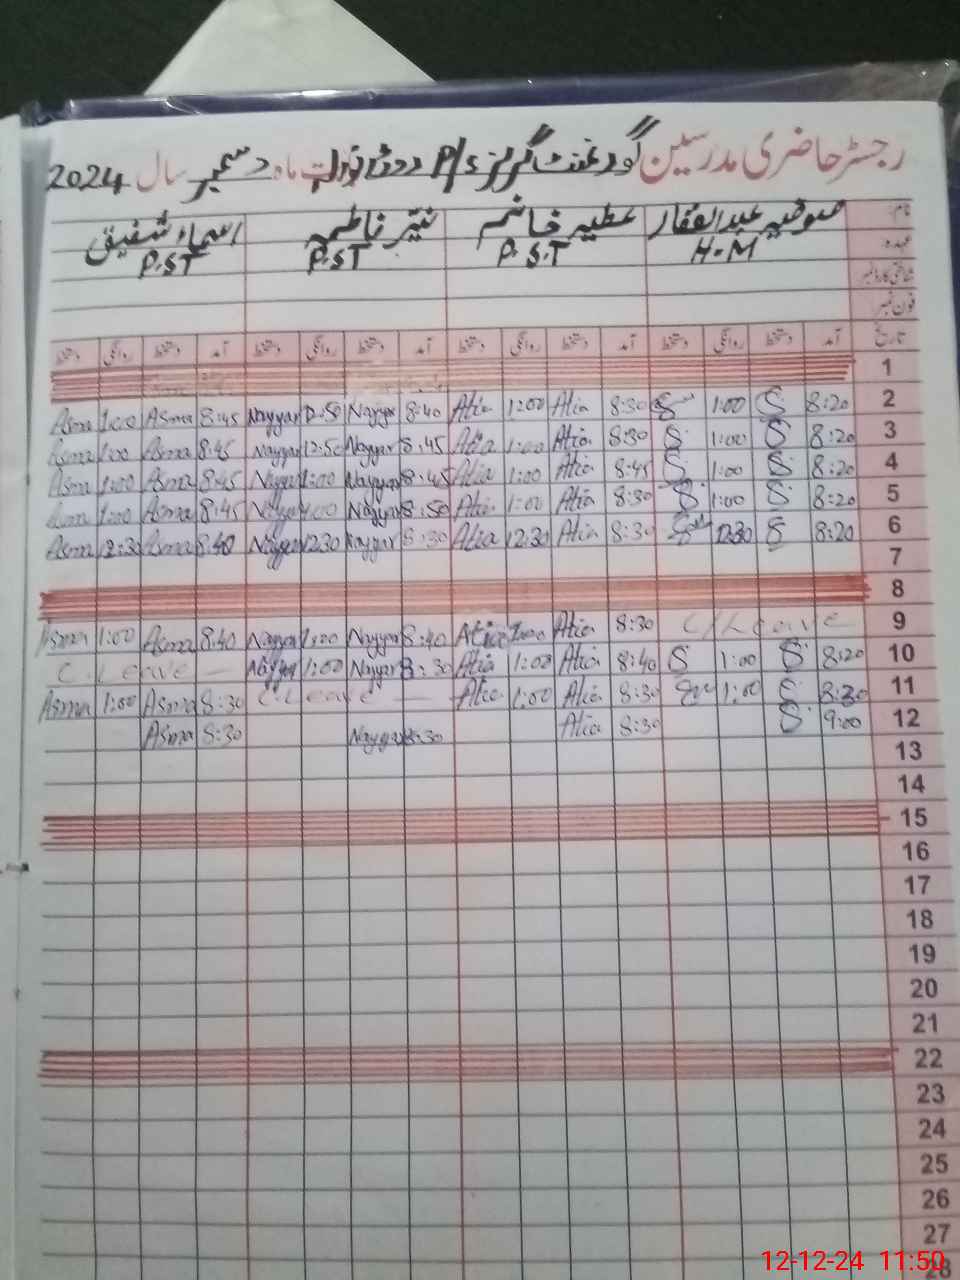 رجسٹر حاضری مدرسین گورنمنٹ گرلز P/S ماہ دسمبر سال 2024
نام: صوفیہ عبدالغفار عطیہ خانم نیئر فاطمہ اسماء شفیق
عہدہ H.M P.S.T P.ST P.ST
شناختی کارڈ نمبر
فون نمبر
تاریخ آمد دستخط روانگی دستخط آمد دستخط روانگی دستخط آمد دستخط روانگی دستخط آمد دستخط روانگی دستخط
1
Asma 1:00 Asma 8:45 Nayyar 12:50 Nayyar 8:40 Atia 1:00 Atia 8:30 S 1:00 S 8:20 2
Asma 1:00 Asma 8:45 Nayyar 12:50 Nayyar 8:45 Atia 1:00 Atia 8:30 S 1:00 S 8:20 3
Asma 1:00 Asma 8:45 Nayyar 1:00 Nayyar 8:45 Atia 1:00 Atia 8:45 S 1:00 S 8:20 4
Asma 1:00 Asma 8:45 Nayyar 1:00 Nayyar 8:50 Atia 1:00 Atia 8:30 S 1:00 S 8:20 5
Asma 12:30 Asma 8:40 Nayyar 12:30 Nayyar 8:30 Atia 12:30 Atia 8:30 12:30 S 8:20 6
7
8
Asma 1:00 Asma 8:40 Nayyar 1:00 Nayyar 8:40 Atia 1:00 Atia 8:30 C/Leave 9
C.Leave Nayyar 1:00 Nayyar 8:30 Atia 1:00 Atia 8:40 S 1:00 S 8:20 10
Asma 1:00 Asma 8:30 C.Leave Atia 1:00 Atia 8:30 1:00 S 8:30 11
Asma 8:30 Nayyar 8:30 Atia 8:30 S 9:00 12
13
14
15
16
17
18
19
20
21
22
23
24
25
26
27
28
12-12-24 11:50